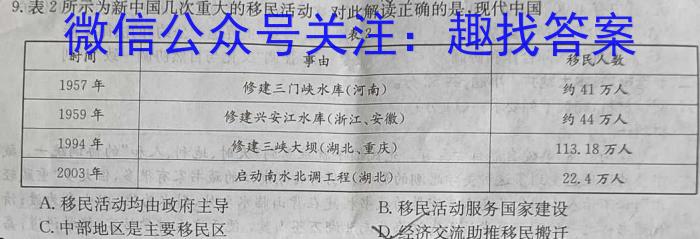 9.表2所示为新中国几次重大的移民活动,对此解读正确的是:现代中国
微信公众号关注:趣找答案
表2
时间 事由 移民人数
1957年 修建三门峡水库(河南) 约41万人
1959年 修建兴安江水库(浙江、安徽) 约44万人
1994年 修建三峡大坝(湖北、重庆) 113.18万人
2003年 启动南水北调工程(湖北) 22.4万人
A.移民活动均由政府主导 B.移民活动服务国家建设
C.中部地区是主要移民区 D.经济交流助推移民搬迁